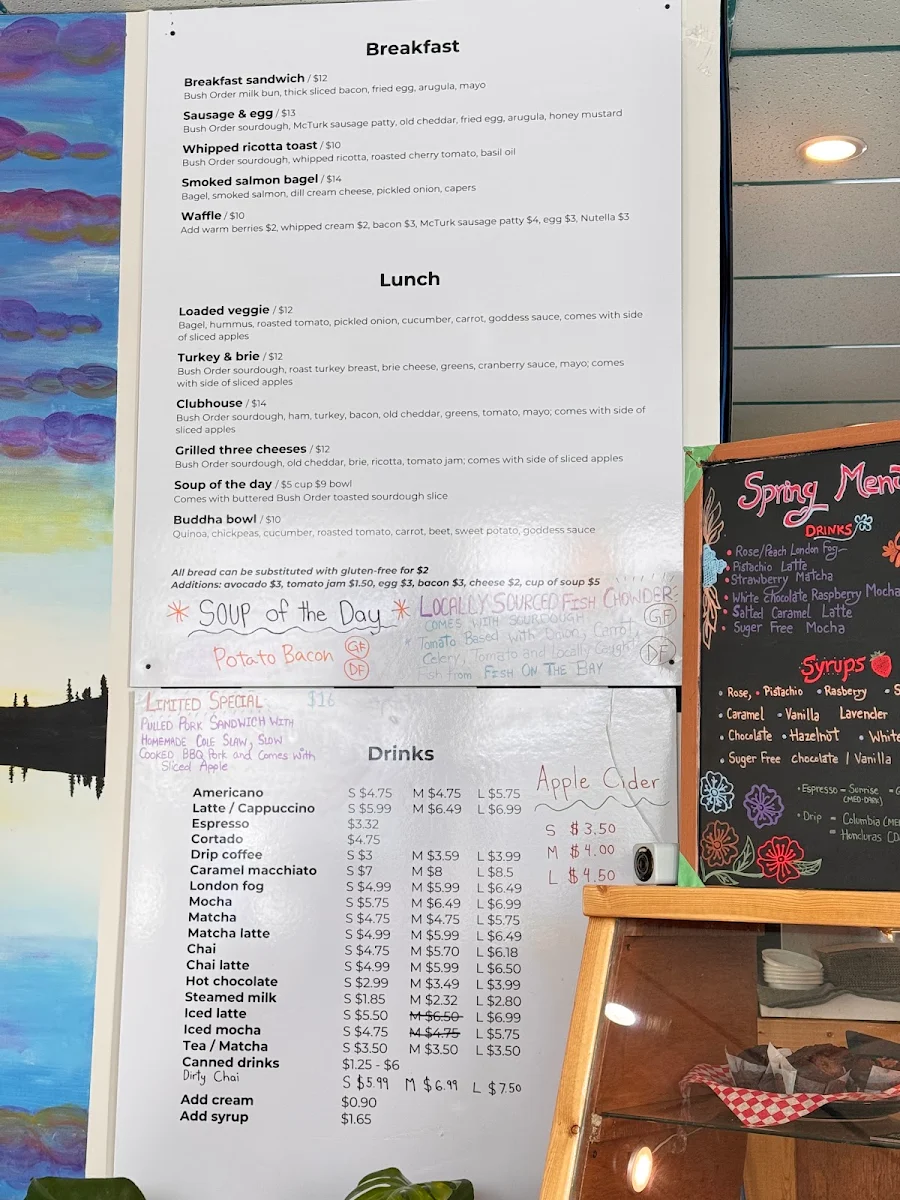 Breakfast
Breakfast sandwich / $12
Bush Order milk bun, thick sliced bacon, fried egg, arugula, mayo
Sausage & egg / $13
Bush Order sourdough, McTurk sausage patty, old cheddar, fried egg, arugula, honey mustard
Whipped ricotta toast / $10
Bush Order sourdough, whipped ricotta, roasted cherry tomato, basil oil
Smoked salmon bagel / $14
Bagel, smoked salmon, dill cream cheese, pickled onion, capers
Waffle / $10
Add warm berries $2, whipped cream $2, bacon $3, McTurk sausage patty $4, egg $3, Nutella $3
Lunch
Loaded veggie / $12
Bagel, hummus, roasted tomato, pickled onion, cucumber, carrot, goddess sauce, comes with side
of sliced apples
Turkey & brie / $12
Bush Order sourdough, roast turkey breast, brie cheese, greens, cranberry sauce, mayo; comes
with side of sliced apples
Clubhouse / $14
Bush Order sourdough, ham, turkey, bacon, old cheddar, greens, tomato, mayo; comes with side of
sliced apples
Grilled three cheeses / $12
Bush Order sourdough, old cheddar, brie, ricotta, tomato jam; comes with side of sliced apples
Soup of the day / $5 cup $9 bowl
Comes with buttered Bush Order toasted sourdough slice
Buddha bowl / $10
Quinoa, chickpeas, cucumber, roasted tomato, carrot, beet, sweet potato, goddess sauce
All bread can be substituted with gluten-free for $2
Additions: avocado $3, tomato jam $1.50, egg $3, bacon $3, cheese $2, cup of soup $5
SOUP of the Day
Potato Bacon GF
DF
LOCALLY SOURCED FISH CHOWDER
COMES WITH SOURDOUGH GF
Tomato Based with Onion, Carrot,
Celery, Tomato and Locally Caught DF
Fish from FISH ON THE BAY
LIMITED SPECIAL $16
PULLED PORK SANDWICH WITH
HOMEMADE COLE SLAW, SLOW
COOKED BBQ Pork and Comes with
Sliced Apple
Drinks
Americano S $4.75 M $4.75 L $5.75
Latte / Cappuccino S $5.99 M $6.49 L $6.99
Espresso $3.32
Cortado $4.75
Drip coffee S $3 M $3.59 L $3.99
Caramel macchiato S $7 M $8 L $8.5
London fog S $4.99 M $5.99 L $6.49
Mocha S $5.75 M $6.49 L $6.99
Matcha S $4.75 M $4.75 L $5.75
Matcha latte S $4.99 M $5.99 L $6.49
Chai S $4.75 M $5.70 L $6.18
Chai latte S $4.99 M $5.99 L $6.50
Hot chocolate S $2.99 M $3.49 L $3.99
Steamed milk S $1.85 M $2.32 L $2.80
Iced latte S $5.50 M $6.50 L $6.99
Iced mocha S $4.75 M $4.75 L $5.75
Tea / Matcha S $3.50 M $3.50 L $3.50
Canned drinks $1.25 - $6
Dirty Chai S $5.99 M $6.99 L $7.50
Add cream $0.90
Add syrup $1.65
Apple Cider
S $3.50
M $4.00
L $4.50
Spring Menu
DRINKS
• Rose/Peach London Fog
• Pistachio Latte
• Strawberry Matcha
• White Chocolate Raspberry Mocha
• Salted Caramel Latte
• Suger Free Mocha
Syrups
• Rose, • Pistachio • Rasberry • S
• Caramel • Vanilla Lavender
• Chocolate • Hazelnut • White
• Suger Free chocolate / Vanilla
• Espresso - Sunrise
(MED-DARK)
• Drip = Columbia (ME
= Honduras (D